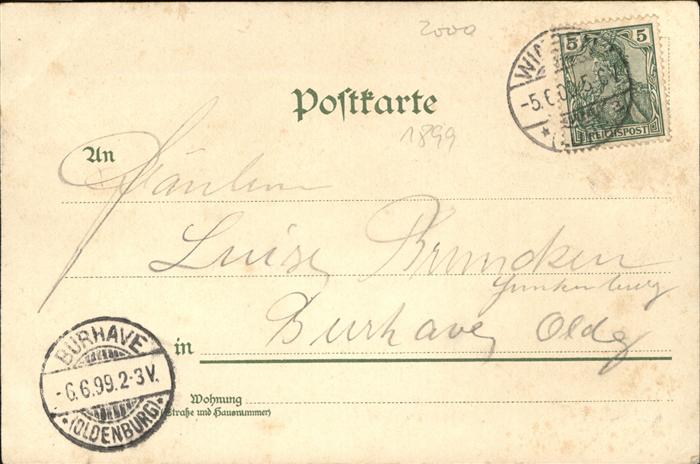 2000
5 5
REICHSPOST
-5.6.
Postkarte
1899
An
Fräulein
Luise Bruncken
Burhave, Oldbg
in
BURHAVE
-6.6.99.2-3V.
*(OLDENBURG)*
Wohnung
(Straße und Hausnummer)